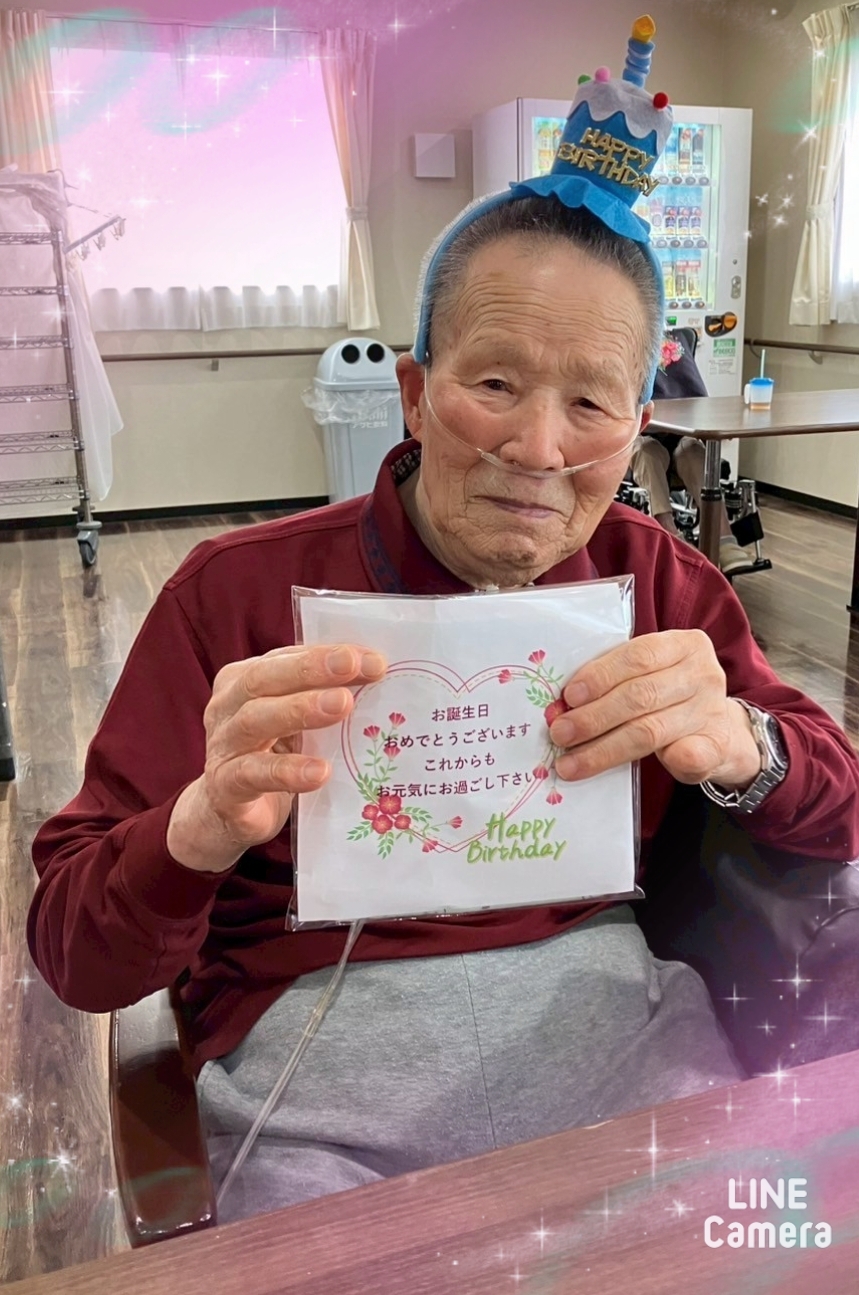 HAPPY
BIRTHDAY
お誕生日
おめでとうございます
これからも
お元気にお過ごし下さい
Happy
Birthday
LINE
Camera